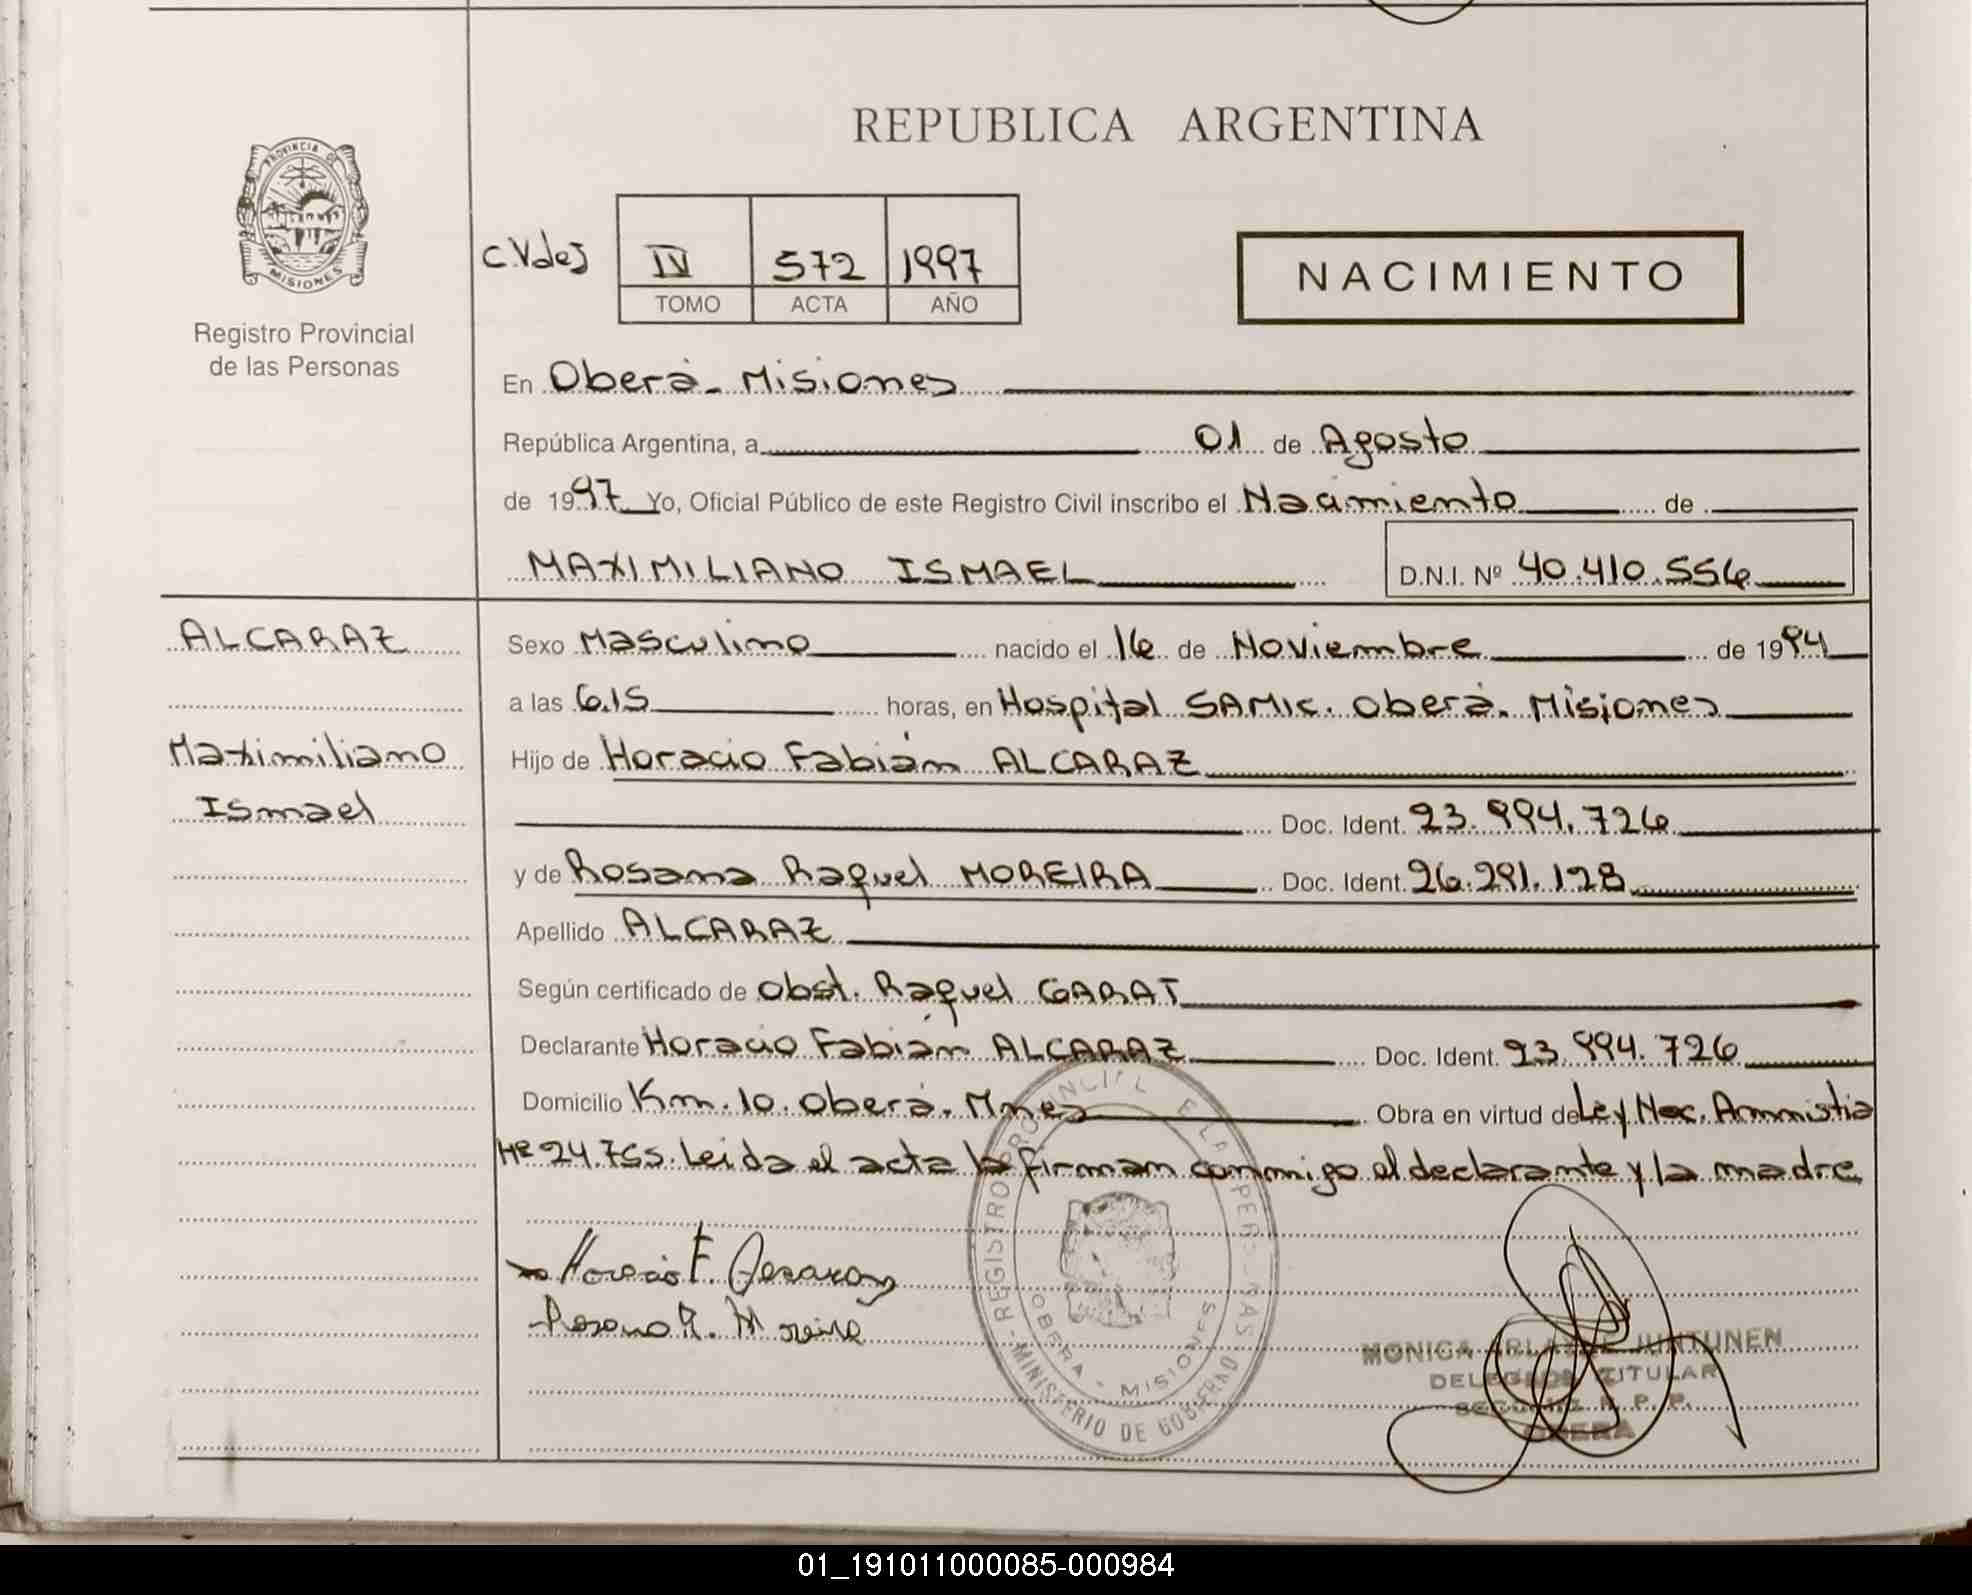 REPUBLICA ARGENTINA
PROVINCIA DE
MISIONES
Registro Provincial
de las Personas
C.Vdes
IV 572 1997
TOMO ACTA AÑO
NACIMIENTO
En Oberá - Misiones
República Argentina, a 01 de Agosto
de 1997 Yo, Oficial Público de este Registro Civil inscribo el Nacimiento de
MAXIMILIANO ISMAEL D.N.I. Nº 40.410.556
ALCARAZ
Maximiliano
Ismael
Sexo Masculino nacido el 16 de Noviembre de 1994
a las 6.15 horas, en Hospital SAMIC. Oberá. Misiones
Hijo de Horacio Fabián ALCARAZ
Doc. Ident. 23.994.726
y de Rosana Raquel MOREIRA Doc. Ident. 26.291.128
Apellido ALCARAZ
Según certificado de Obst. Raquel GARAT
Declarante Horacio Fabián ALCARAZ Doc. Ident. 23.994.726
Domicilio Km. 10. Oberá. Mnes Obra en virtud de Ley Nac. Amnistia
Nº 24.755. Leida el acta la firman conmigo el declarante y la madre
Horacio F. Alcaraz
Rosana R. Moreira
REGISTRO PROVINCIAL DE LAS PERSONAS
OBERA - MISIONES
MINISTERIO DE GOBIERNO
MONICA JUNTUNEN
DELEGADA TITULAR
R. P. P.
OBERA
01_191011000085-000984